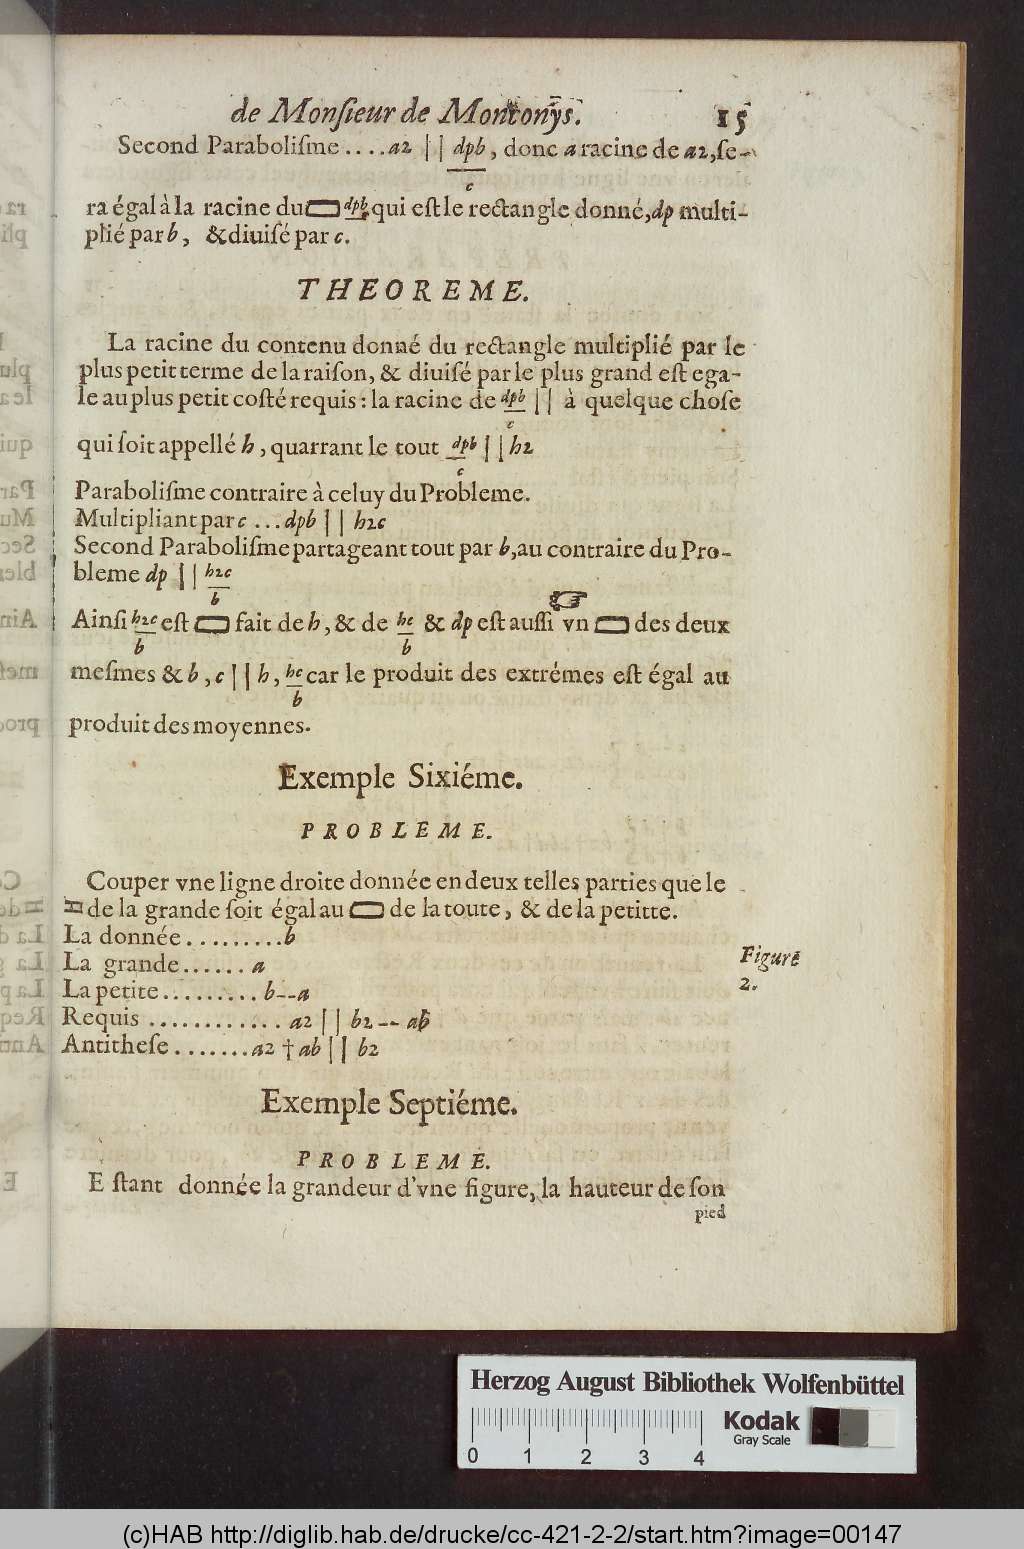 de Monſieur de Montonys. 15
Second Paraboliſme .... a2 || dpb, donc a racine de a2, ſe-
c
ra égal à la racine du ▭ dpb qui eſt le rectangle donné, dp multi-
plié par b, & diuiſé par c.
THEOREME.
La racine du contenu donné du rectangle multiplié par le
plus petit terme de la raiſon, & diuiſé par le plus grand eſt ega-
le au plus petit coſté requis: la racine de dpb || à quelque choſe
c
qui ſoit appellé h, quarrant le tout dpb || h2
c
Paraboliſme contraire à celuy du Probleme.
Multipliant par c ... dpb || h2c
Second Paraboliſme partageant tout par b, au contraire du Pro-
bleme dp || h2c
b
Ainſi h2c eſt ▭ fait de h, & de hc & dp eſt auſſi vn ▭ des deux
b b
meſmes & b, c || h, hc car le produit des extrémes eſt égal au
b
produit des moyennes.
Exemple Sixiéme.
PROBLEME.
Couper vne ligne droite donnée en deux telles parties que le
de la grande ſoit égal au ▭ de la toute, & de la petitte.
La donnée .........b
La grande...... a
La petite......... b--a
Requis ............ a2 || b2 -- ab
Antitheſe.......a2 † ab || b2
Figure
2.
Exemple Septiéme.
PROBLEME.
Eſtant donnée la grandeur d'vne figure, la hauteur de ſon
pied
Herzog August Bibliothek Wolfenbüttel
Kodak
Gray Scale
0 1 2 3 4
(c)HAB http://diglib.hab.de/drucke/cc-421-2-2/start.htm?image=00147